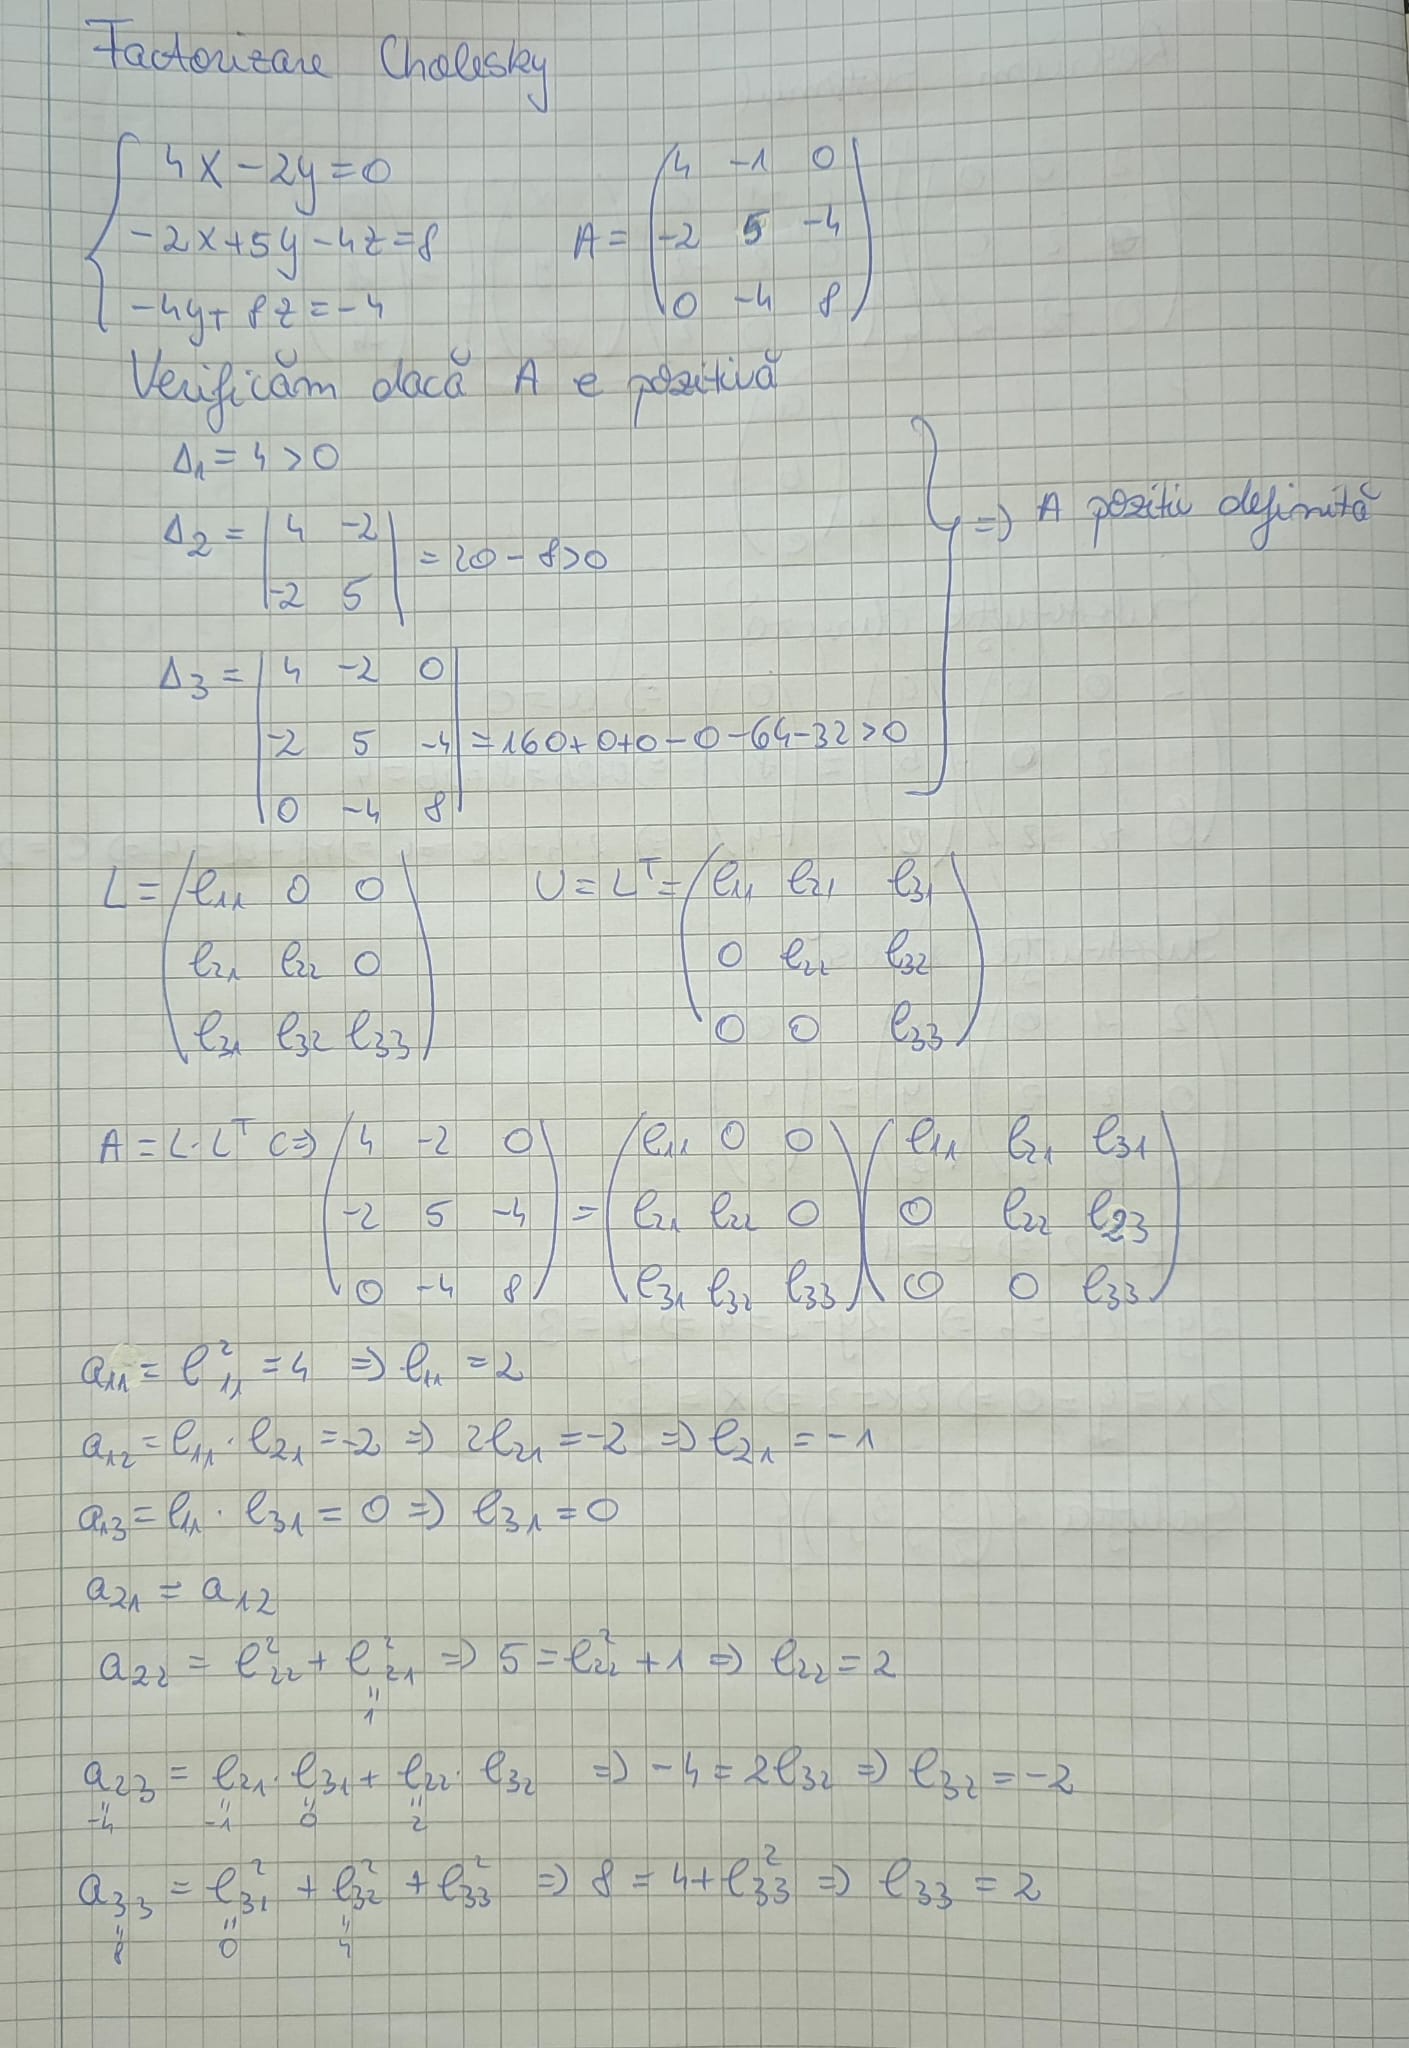 Factorizare Cholesky
4x - 2y = 0
-2x + 5y - 4z = 8
-4y + 8z = -4
A = ( 4 -1 0
-2 5 -4
0 -4 8 )
Verificăm dacă A e pozitivă
Δ1 = 4 > 0
Δ2 = | 4 -2
-2 5 | = 20 - 8 > 0
Δ3 = | 4 -2 0
-2 5 -4
0 -4 8 | = 160 + 0 + 0 - 0 - 64 - 32 > 0
=> A pozitiv definită
L = ( l11 0 0
l21 l22 0
l31 l32 l33 )
U = L^T = ( l11 l21 l31
0 l22 l32
0 0 l33 )
A = L · L^T <=> ( 4 -2 0
-2 5 -4
0 -4 8 ) = ( l11 0 0
l21 l22 0
l31 l32 l33 ) ( l11 l21 l31
0 l22 l23
0 0 l33 )
a11 = l11² = 4 => l11 = 2
a12 = l11 · l21 = -2 => 2l21 = -2 => l21 = -1
a13 = l11 · l31 = 0 => l31 = 0
a21 = a12
a22 = l22² + l21² => 5 = l22² + 1 => l22 = 2
" 1
a23 = l21 · l31 + l22 · l32 => -4 = 2l32 => l32 = -2
" -4 " -1 " 0 " 2
a33 = l31² + l32² + l33² => 8 = 4 + l33² => l33 = 2
" 8 " 0 " 4